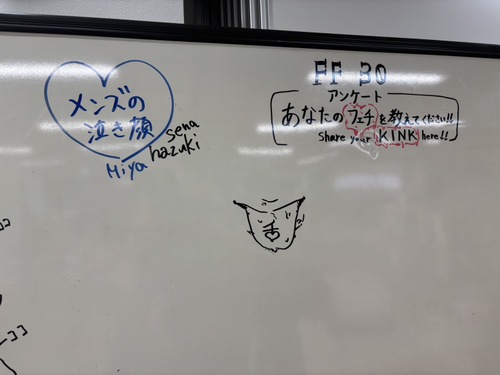 メンズの
泣き顔
sena
hazuki
Miya
FF 30
アンケート
あなたのフェチを教えてください!!
Share your KINK here!!